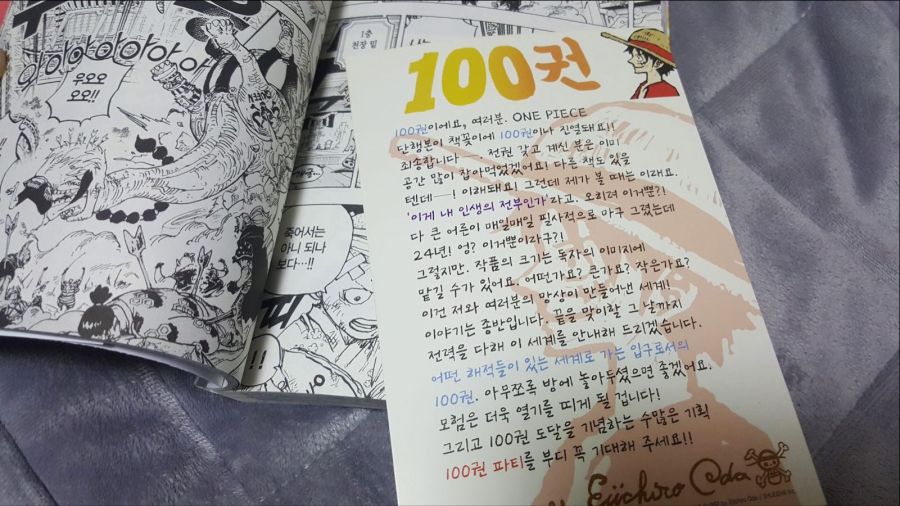 아아아아아아아
우오오
오오!!
1층
천장 밑
죽어서는
아니 되나
보다…!!
!!
100권
100권이에요, 여러분. ONE PIECE
단행본이 책꽂이에 100권이나 진열돼요!!
죄송합니다―― 전권 갖고 계신 분은 이미
공간 많이 잡아먹었겠어요! 다른 책도 있을
텐데―! 이해돼요! 그런데 제가 볼 때는 이래요.
'이게 내 인생의 전부인가'라고. 오히려 이거뿐?!
다 큰 어른이 매일매일 필사적으로 마구 그렸는데
24년! 엉? 이거뿐이라구?!
그렇지만. 작품의 크기는 독자의 이미지에
맡길 수가 있어요. 어떤가요? 큰가요? 작은가요?
이건 저와 여러분의 망상이 만들어낸 세계!
이야기는 종반입니다. 끝을 맞이할 그 날까지
전력을 다해 이 세계를 안내해 드리겠습니다.
어떤 해적들이 있는 세계로 가는 입구로서의
100권. 아무쪼록 방에 놓아두셨으면 좋겠어요.
모험은 더욱 열기를 띠게 될 겁니다!
그리고 100권 도달을 기념하는 수많은 기획
100권 파티를 부디 꼭 기대해 주세요!!
Eiichiro Oda